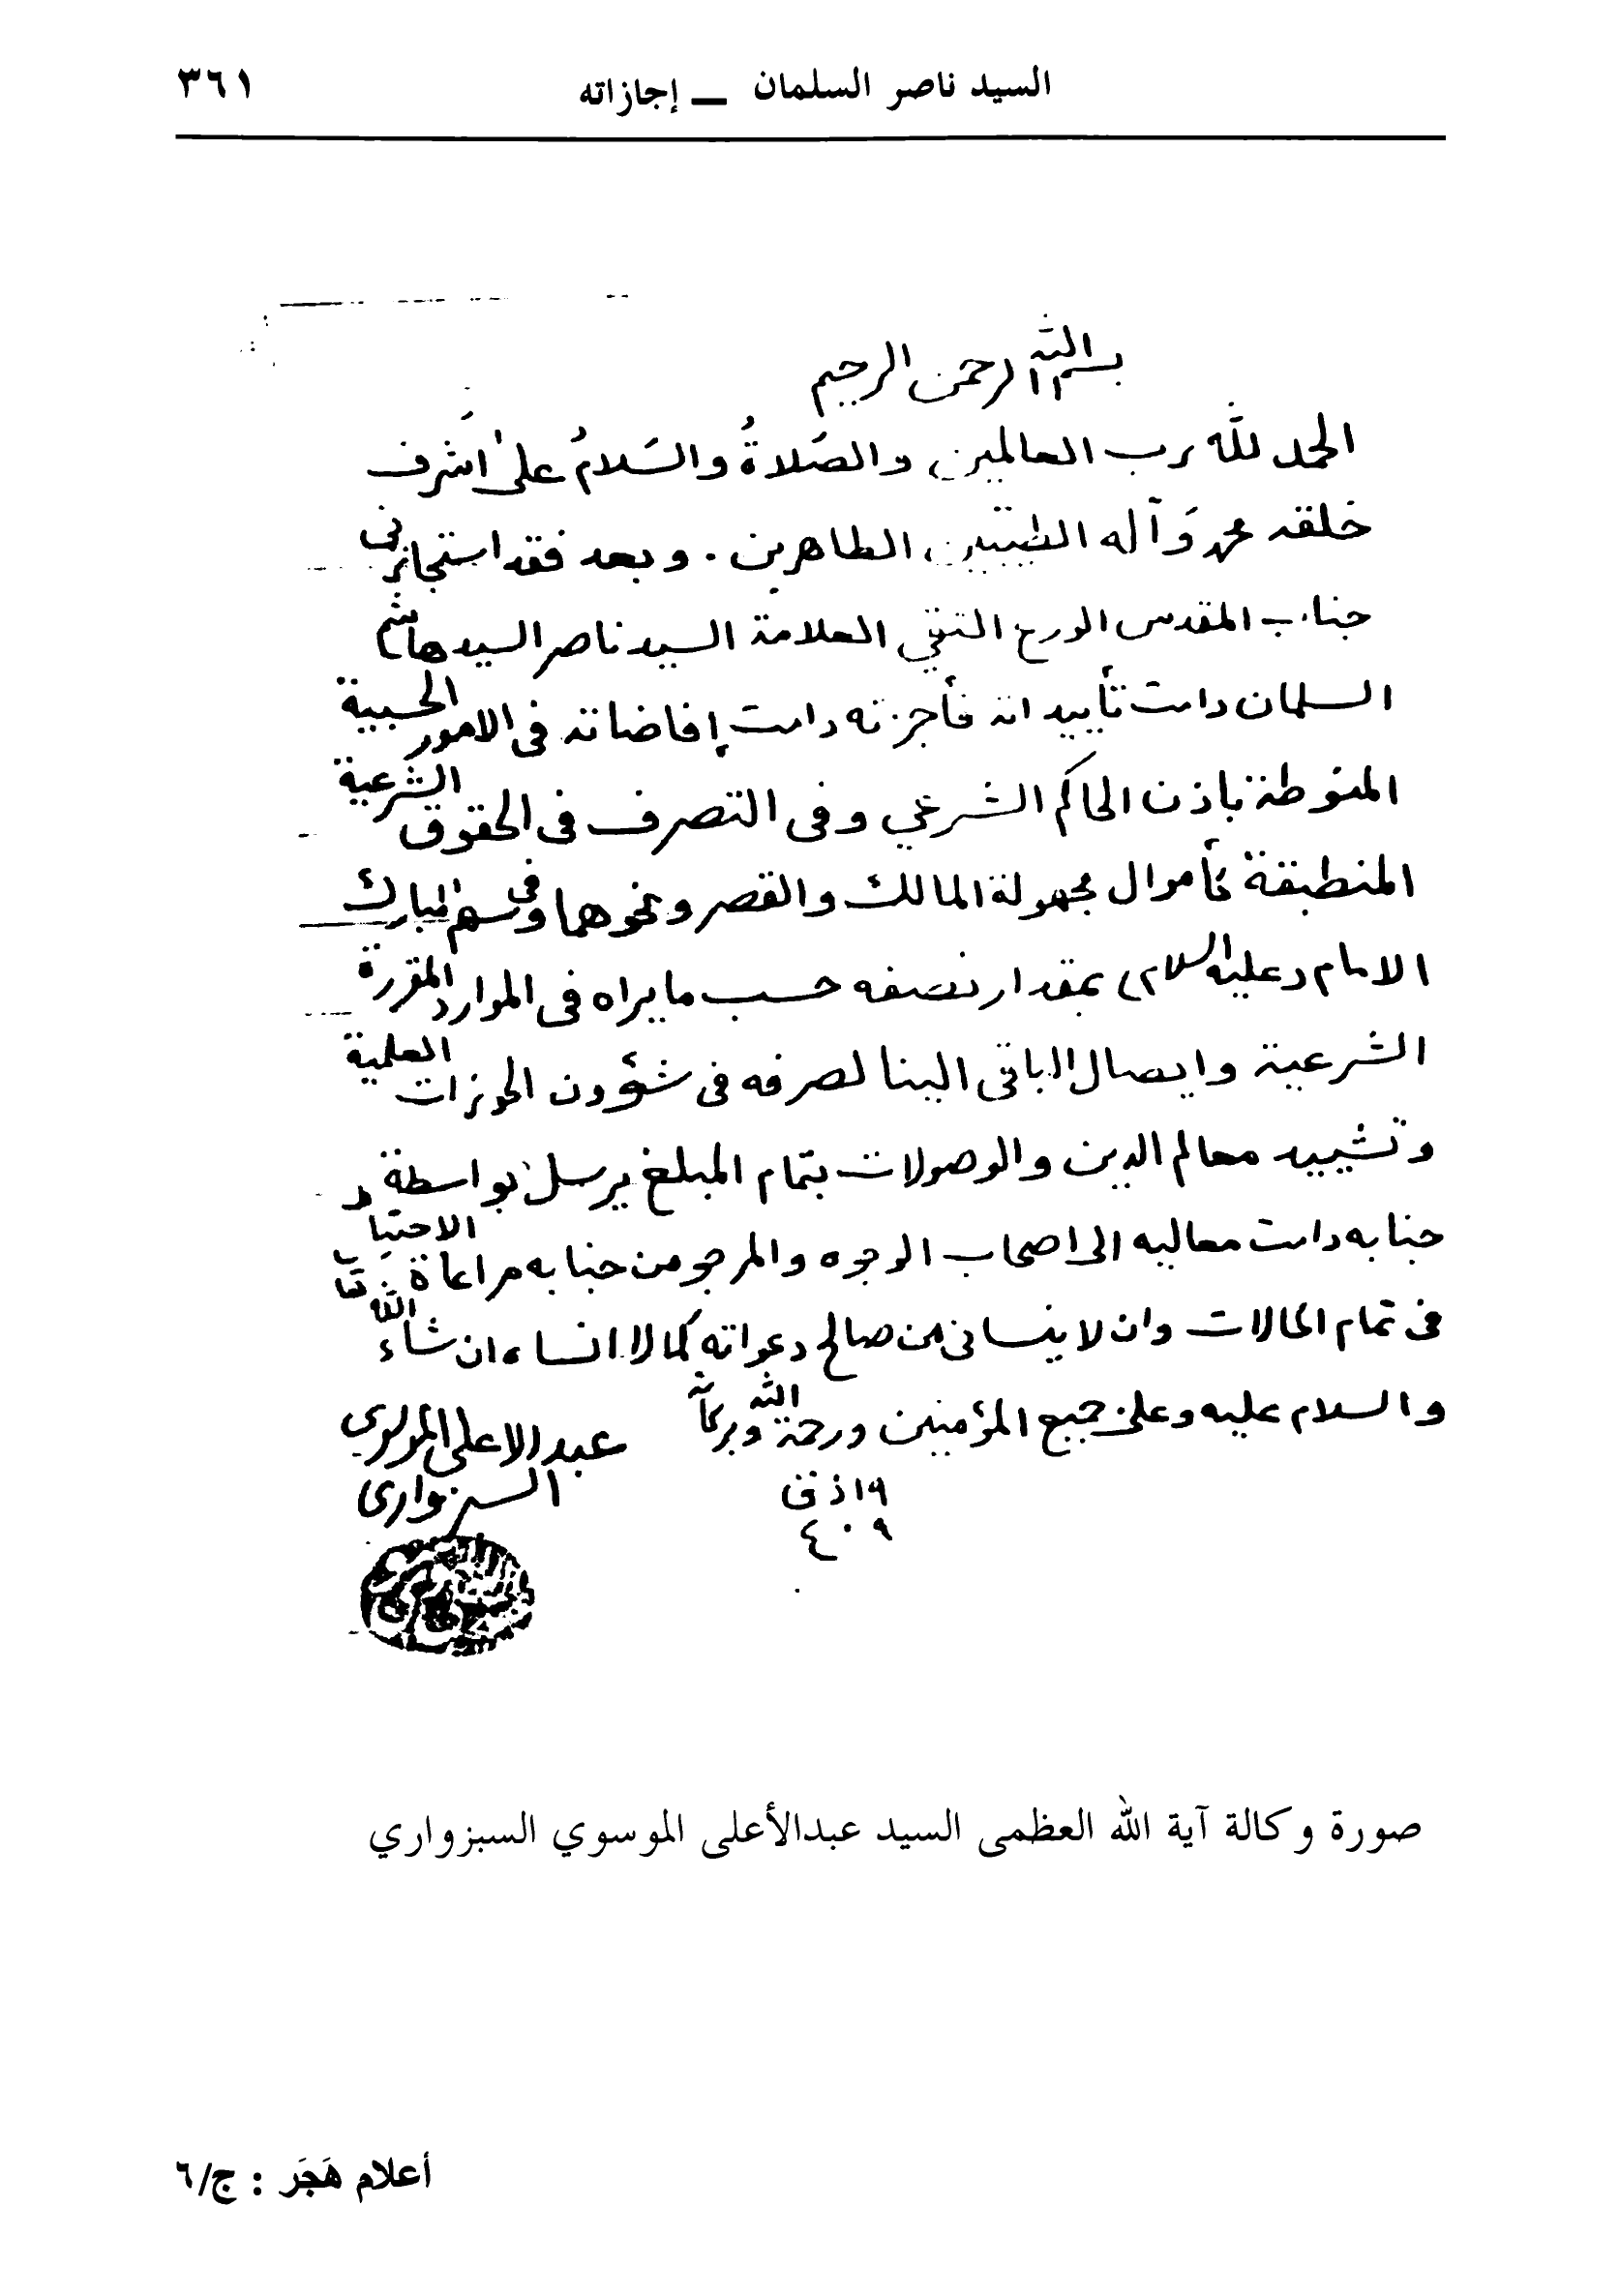 السيد ناصر السلمان ــ إجازاته ٣٦١
بسم الله الرحمن الرحيم
الحمد لله رب العالمين والصَلاةُ والسَلامُ على اشرف
خلقه محمد وَآله الطيّبين الطاهرين . وبعد فقد استجازني
جناب المقدس الورع التقي العلامة السيد ناصر السيد هاشم
السلمان دامت تأييداته فأجزته دامت إفاضاته في الامور الحسبية
المنوطة باذن الحاكم الشرعي وفي التصرف في الحقوق الشرعية
المنطبقة كأموال مجهولة المالك والقصر ونحوهما وفي سهم المبارك
الامام (عليه السلام) بمقدار نصفه حسب ما يراه في الموارد المقررة
الشرعية وايصال الباقي الينا لصرفه في شؤون الحوزات العلمية
وتشييد معالم الدين والوصولات بتمام المبلغ يرسل بواسطة
جنابه دامت معاليه الى اصحاب الوجوه والمرجو من جنابه مراعاة الاحتياط
في تمام الحالات وان لا ينساني من صالح دعواته كما لا انساه ان شاء الله
والسلام عليه وعلى جميع المؤمنين ورحمة الله وبركاته
عبد الاعلى الموسوي
السبزواري
١٩ ذ ق
٤٠٩
صورة وكالة آية الله العظمى السيد عبدالأعلى الموسوي السبزواري
أعلام هَجَر : ج/٦